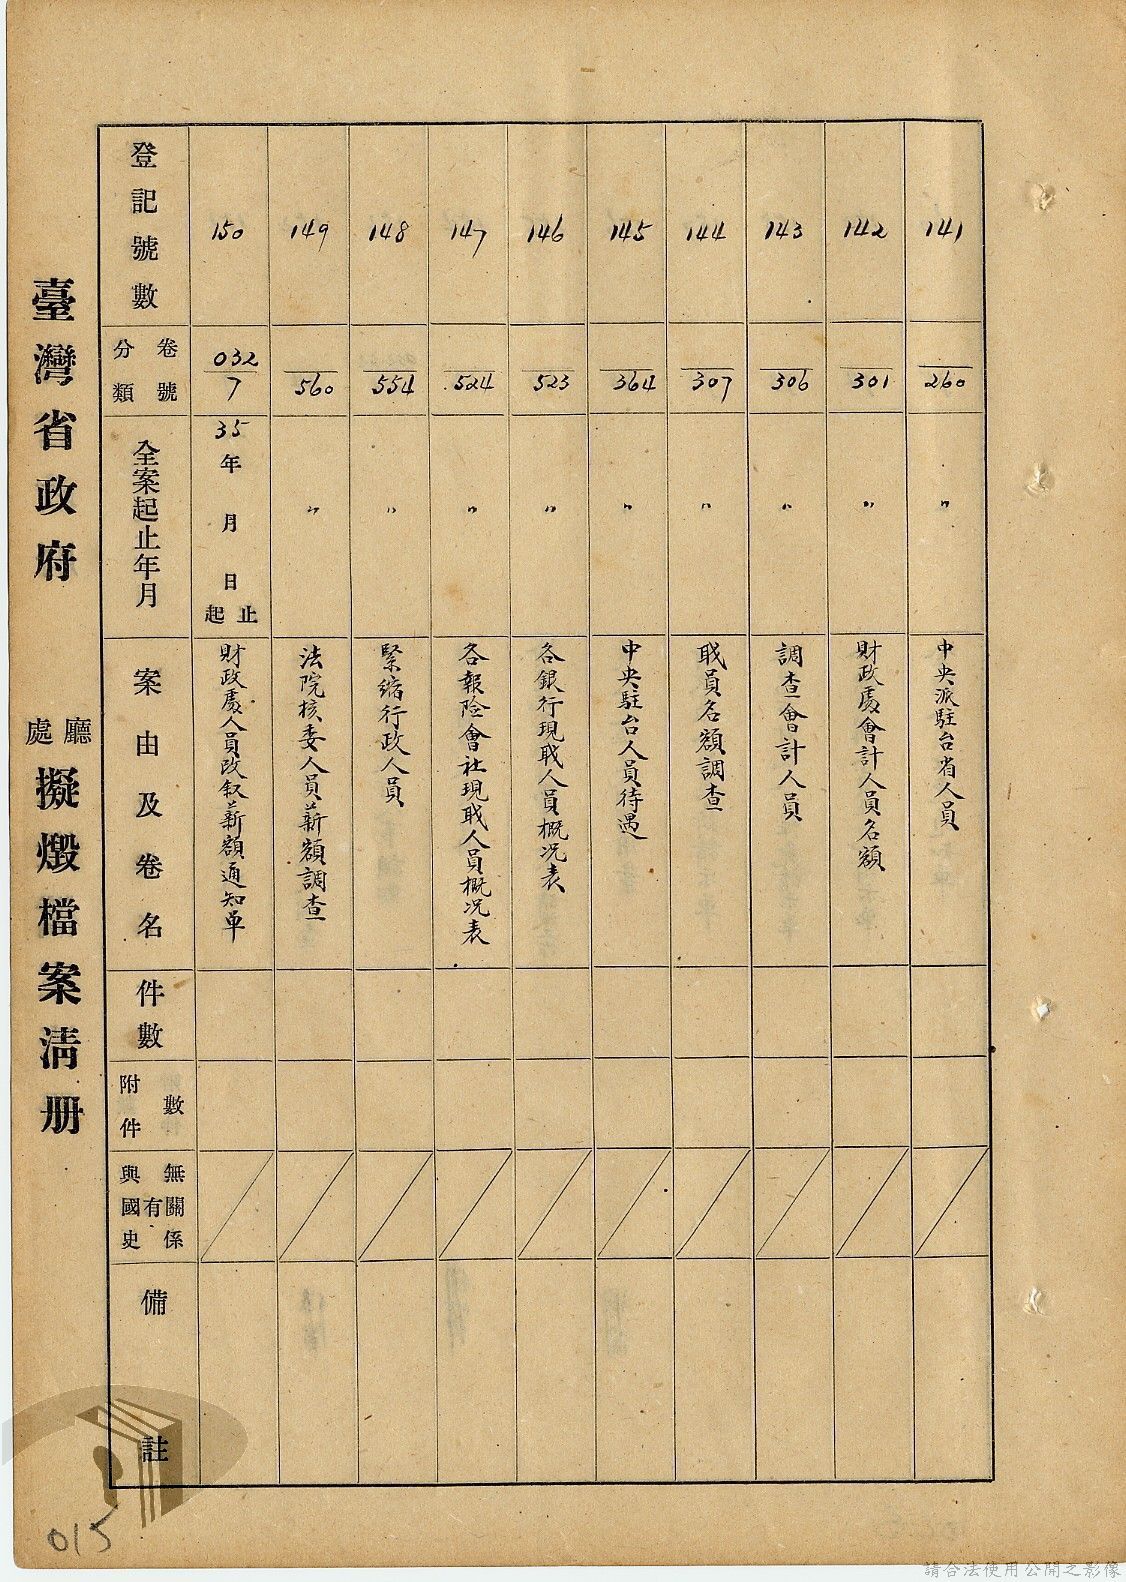 臺灣省政府 廳處 擬燬檔案清册
登記號數
分類 卷號
全案起止年月
案由及卷名
件數
附件數
與國史有無關係
備註
150
032/7
35年 月 日起止
財政處人員改叙薪額通知单
149
560
〃
法院核委人員薪額調查
148
554
〃
緊縮行政人員
147
524
〃
各報险會社現职人員概况表
146
523
〃
各銀行現职人員概况表
145
364
〃
中央駐台人員待遇
144
307
〃
职員名額調查
143
306
〃
調查會計人員
142
301
〃
財政處會計人員名額
141
260
〃
中央派駐台省人員
015
請合法使用公開之影像